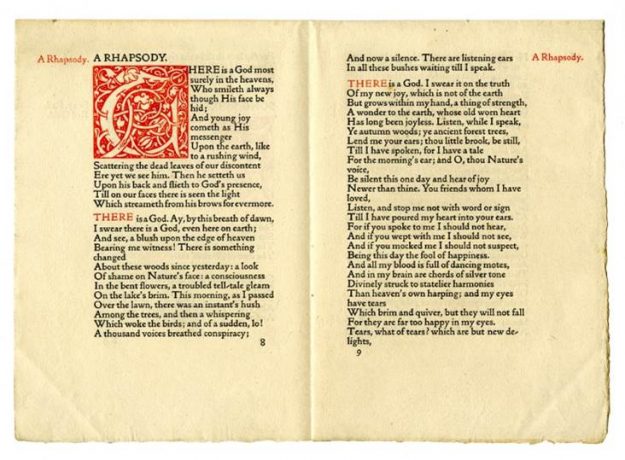 A Rhapsody. A RHAPSODY.
THERE is a God most
surely in the heavens,
Who smileth always
though His face be
hid;
And young joy
cometh as His
messenger
Upon the earth, like
to a rushing wind,
Scattering the dead leaves of our discontent
Ere yet we see him. Then he setteth us
Upon his back and flieth to God's presence,
Till on our faces there is seen the light
Which streameth from his brows for evermore.
THERE is a God. Ay, by this breath of dawn,
I swear there is a God, even here on earth;
And see, a blush upon the edge of heaven
Bearing me witness! There is something
changed
About these woods since yesterday: a look
Of shame on Nature's face: a consciousness
In the bent flowers, a troubled tell-tale gleam
On the lake's brim. This morning, as I passed
Over the lawn, there was an instant's hush
Among the trees, and then a whispering
Which woke the birds; and of a sudden, lo!
A thousand voices breathed conspiracy;
8
And now a silence. There are listening ears
In all these bushes waiting till I speak.
A Rhapsody.
THERE is a God. I swear it on the truth
Of my new joy, which is not of the earth
But grows within my hand, a thing of strength,
A wonder to the earth, whose old worn heart
Has long been joyless. Listen, while I speak,
Ye autumn woods; ye ancient forest trees,
Lend me your ears; thou little brook, be still,
Till I have spoken, for I have a tale
For the morning's ear; and O, thou Nature's
voice,
Be silent this one day and hear of joy
Newer than thine. You friends whom I have
loved,
Listen, and stop me not with word or sign
Till I have poured my heart into your ears.
For if you spoke to me I should not hear,
And if you wept with me I should not see,
And if you mocked me I should not suspect,
Being this day the fool of happiness.
And all my blood is full of dancing motes,
And in my brain are chords of silver tone
Divinely struck to statelier harmonies
Than heaven's own harping; and my eyes
have tears
Which brim and quiver, but they will not fall
For they are far too happy in my eyes.
Tears, what of tears? which are but new de-
lights,
9